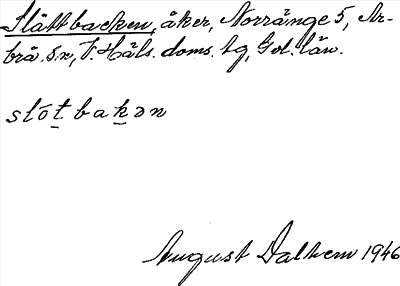 Slåttbacken, åker, Norränge 5, Ar-
brå sn, V. Häls. doms. tg, Gvl. län.
slótbakən
August Dalhem 1946